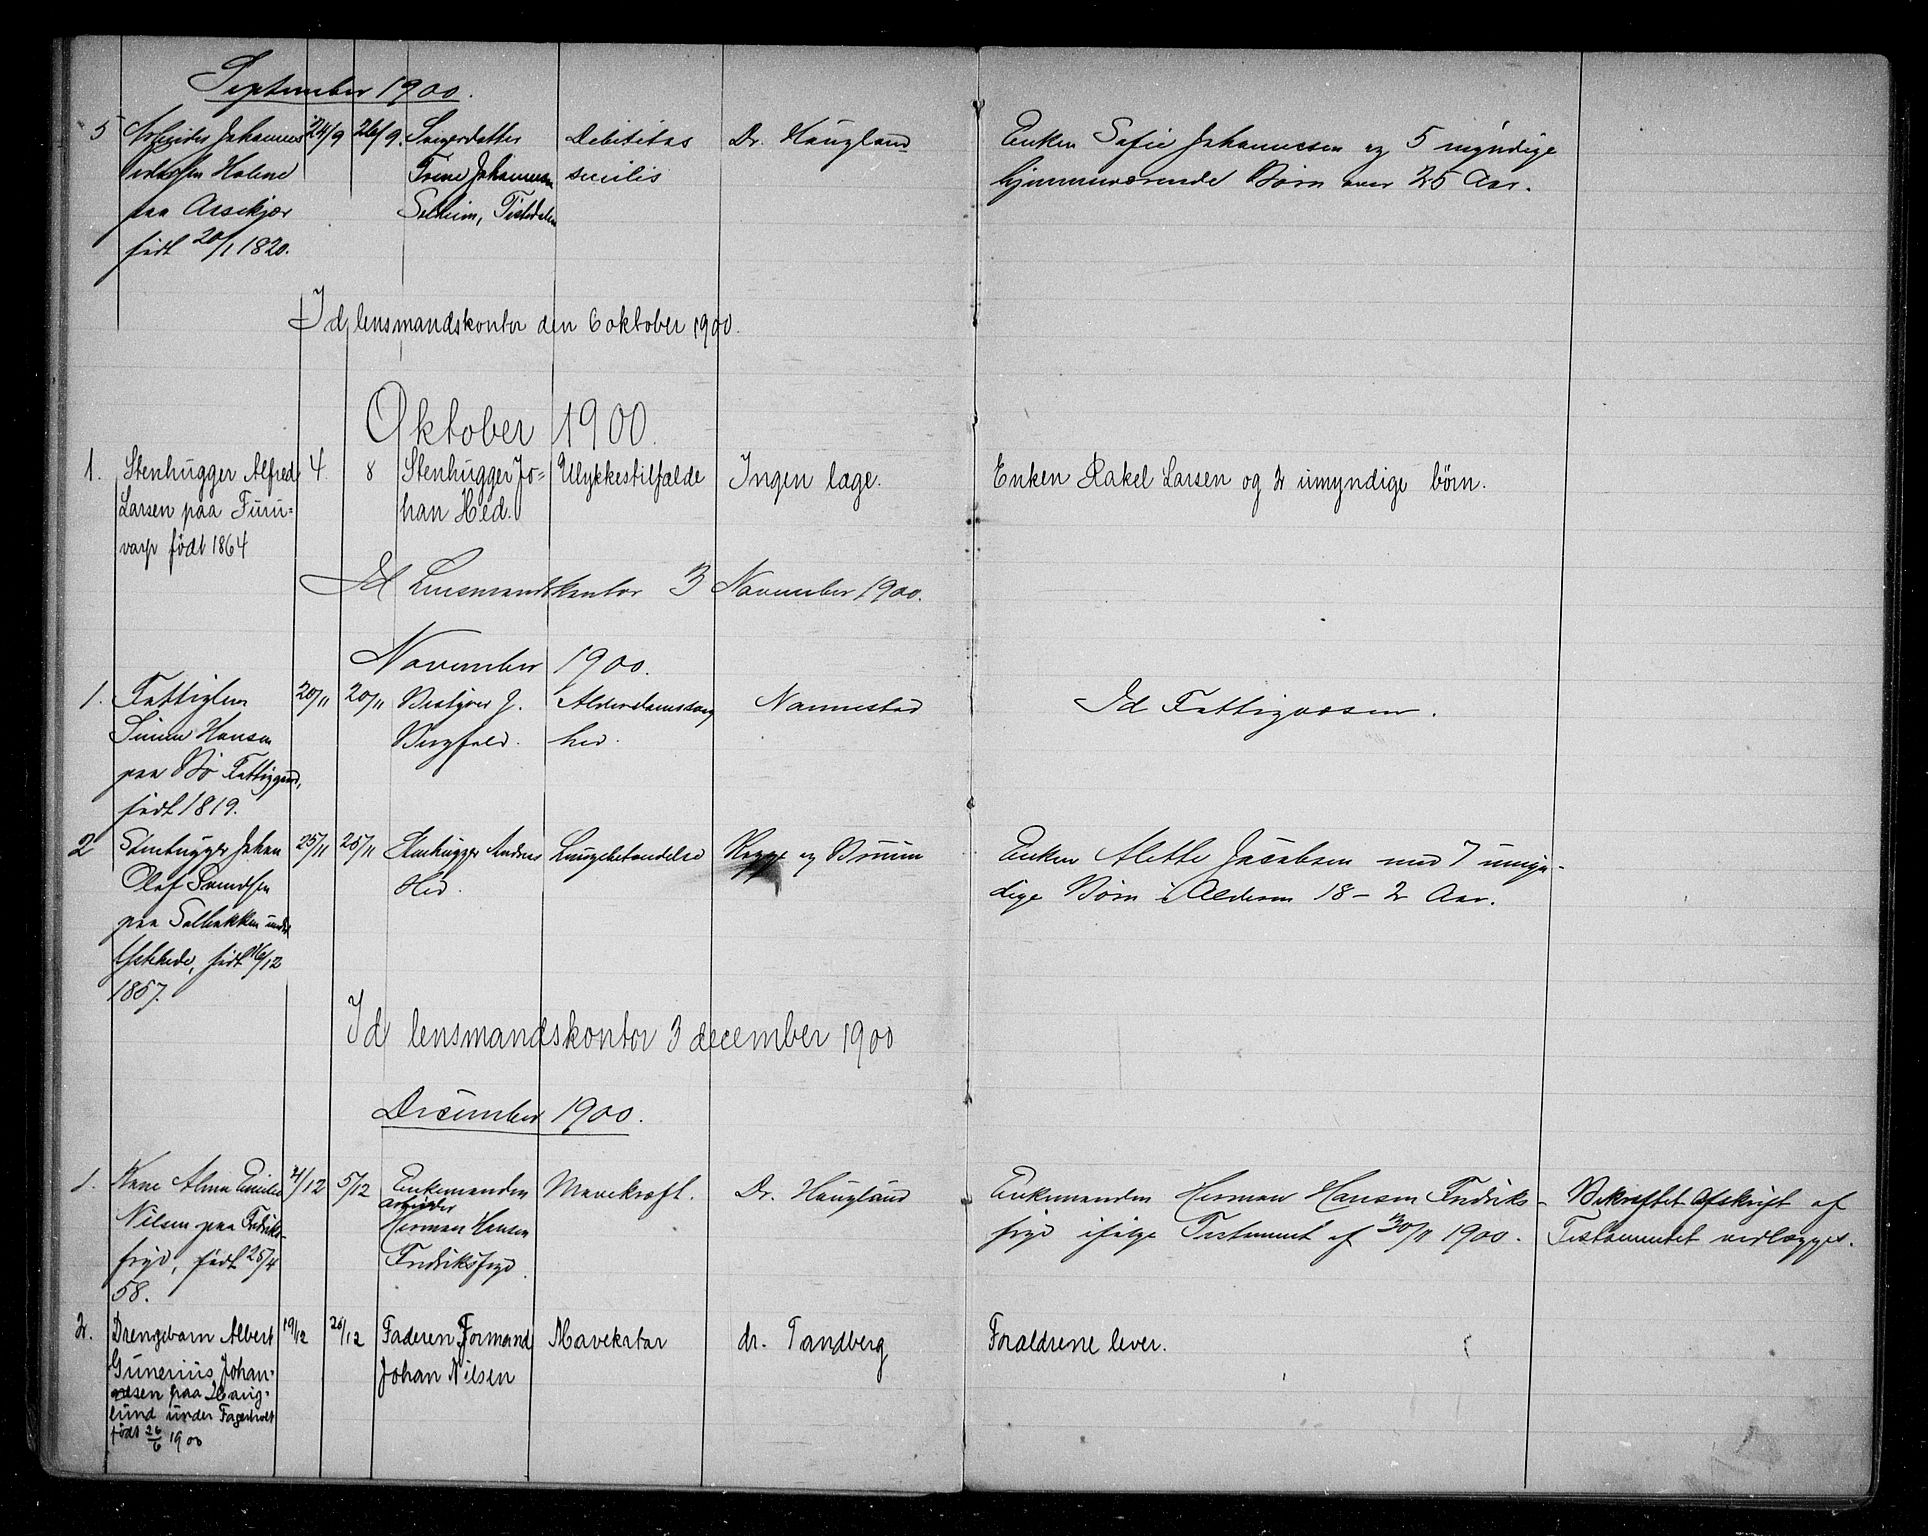 September 1900.
5 Arbeider Johannes 24/9 26/9. Svigerdatter Debilitas Dr. Haugland Enken Sofie Johannesen og 5 myndige
Holene Trine Johannesen senilis hjemmeværende Børn over 25 Aar.
paa Aasekjær Solheim, Tistedalen
født 20/1 1820.
Id lensmandskontor den 6 oktober 1900.
Oktober 1900.
1. Stenhugger Alfred 4. 8 Stenhugger Jo= Ulykkestilfælde Ingen læge. Enken Rakel Larsen og 2 umyndige børn.
Larsen paa Furu= han Hed.
varp født 1864
Id Lensmandskontor 3 November 1900.
November 1900.
1. Fattiglem 20/11 20/11 Bestyrer J. Alderdomssvag Nannestad Id Fattigvæsen.
Hansen Bergfald. hed.
paa Bø Fattiggaard,
født 1819.
2 Stenhugger Johan 25/11 25/11 Stenhugger Andreas Lungebetændelse Rogge og Bruun Enken Alette Jacobsen med 7 umyn-
Olaf Svendsen Hed. dige Børn i Alderen 18 - 2 Aar.
paa Solbakken under
født 16/12
1857.
Id lensmandskontor 3 december 1900
December 1900.
1. Kone Alma Emilie 4/12 5/12 Enkemanden Mavekræft. Dr. Haugland Enkemanden Herman Hansen Fredriks- Bekræftet Afskrift af
Nilsen paa Fredriks- arbeider fryd ifølge Testament af 30/11 1900. Testamentet vedlægges.
fryd, født 25/4 Herman Hansen
58. Fredriksfryd.
2. Drengebarn Albert 19/12 26/12 Faderen, Formand Mavekatar dr. Tandberg Forældrene lever.
Gunerius Johan- Johan Nilsen
nesen paa Haug-
lund under Fagerholt
født 26/6 1900